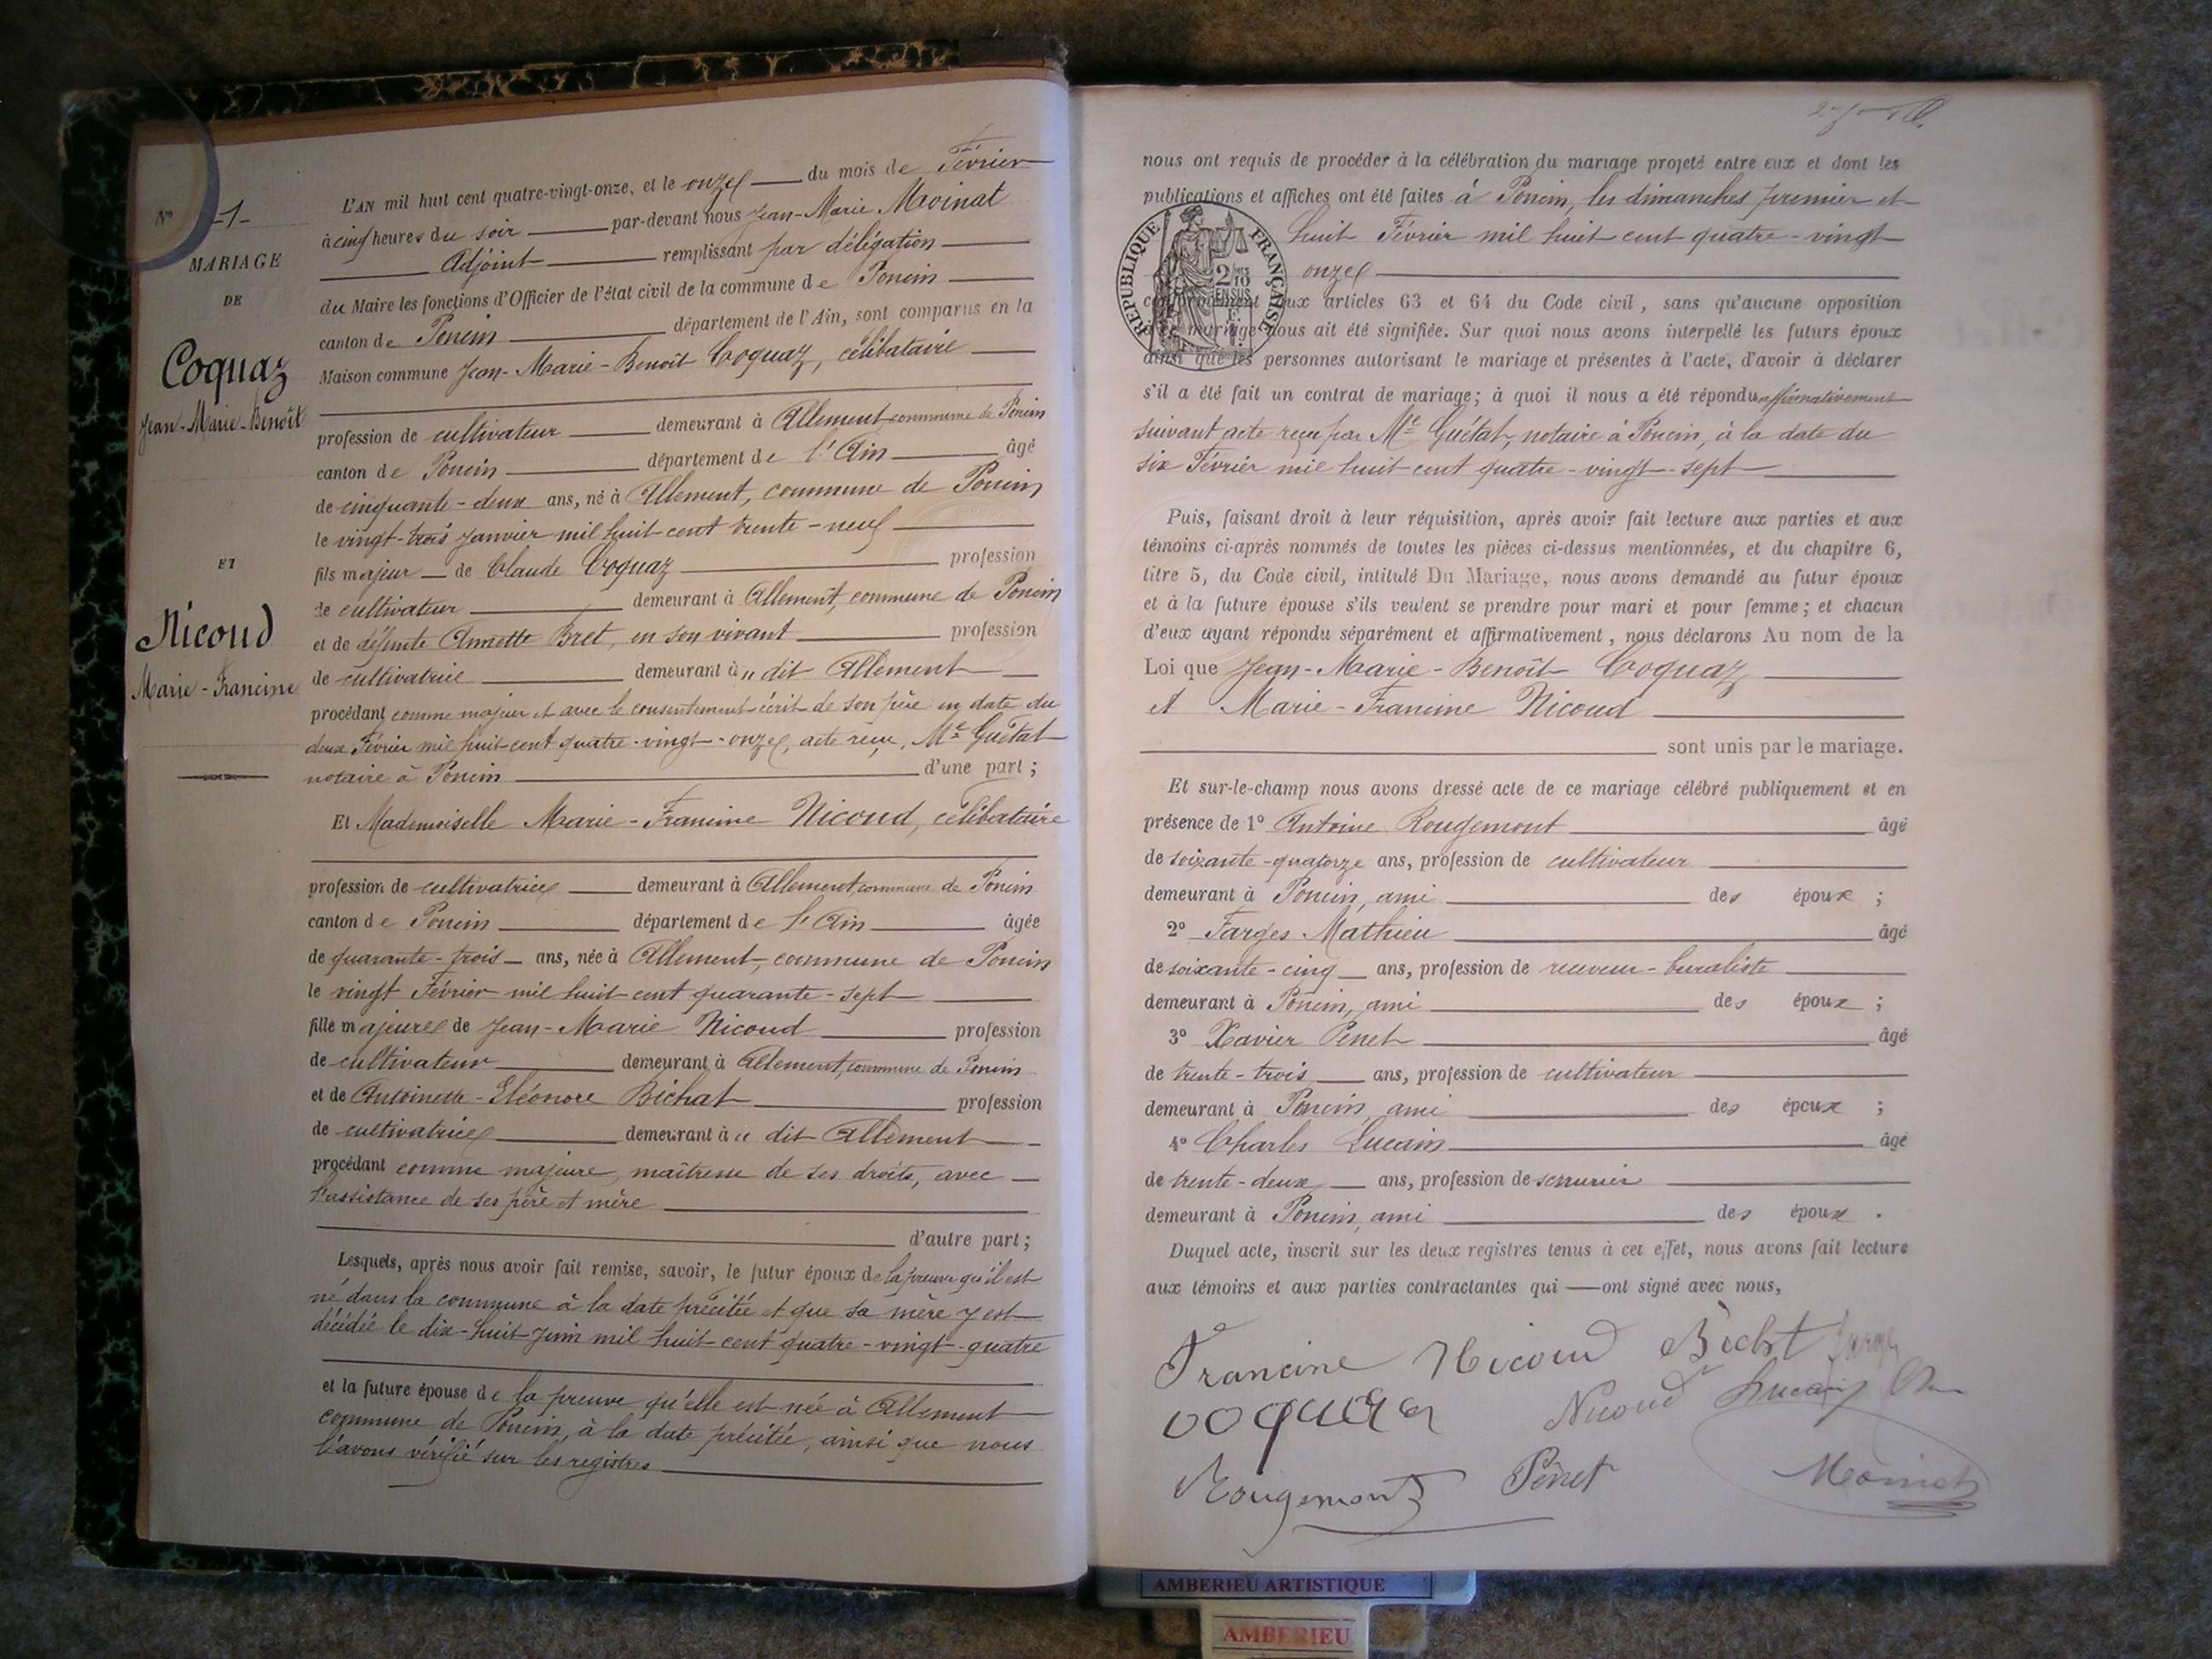 N° -1-
MARIAGE
DE
Coquaz
Jean-Marie-Benoît
ET
Nicoud
Marie-Francine
L'AN mil huit cent quatre-vingt-onze, et le onze du mois de Février
à cinq heures du soir par-devant nous Jean-Marie Moinat
Adjoint remplissant par délégation
du Maire les fonctions d'Officier de l'état civil de la commune de Poncin
canton de Poncin département de l'Ain, sont comparus en la
Maison commune Jean-Marie-Benoît Coquaz, célibataire
profession de cultivateur demeurant à Allement commune de Poncin
canton de Poncin département de l'Ain âgé
de cinquante-deux ans, né à Allement, commune de Poncin
le vingt-trois Janvier mil huit cent trente-neuf
fils majeur de Claude Coquaz profession
de cultivateur demeurant à Allement, commune de Poncin
et de défunte Annette Bret, en son vivant profession
de cultivatrice demeurant à " dit Allement
procédant comme majeur et avec le consentement écrit de son père en date du
deux Février mil huit cent quatre-vingt-onze, acte reçu, Me Guétat
notaire à Poncin d'une part ;
Et Mademoiselle Marie-Francine Nicoud, célibataire
profession de cultivatrice demeurant à Allement, commune de Poncin
canton de Poncin département de l'Ain âgée
de quarante-trois ans, née à Allement, commune de Poncin
le vingt Février mil huit cent quarante-sept
fille majeure de Jean-Marie Nicoud profession
de cultivateur demeurant à Allement, commune de Poncin
et de Antoinette-Eléonore Bichat profession
de cultivatrice demeurant à " dit Allement
procédant comme majeure, maîtresse de ses droits, avec
l'assistance de ses père et mère
d'autre part ;
Lesquels, après nous avoir fait remise, savoir, le futur époux de la preuve qu'il est
né dans la commune à la date précitée et que sa mère y est
décédée le dix-huit Juin mil huit cent quatre-vingt-quatre
et la future épouse de la preuve qu'elle est née à Allement
commune de Poncin, à la date précitée, ainsi que nous
l'avons vérifié sur les registres
nous ont requis de procéder à la célébration du mariage projeté entre eux et dont les
publications et affiches ont été faites à Poncin, les dimanches premier et
huit Février mil huit cent quatre-vingt
onze
RÉPUBLIQUE FRANÇAISE
2/10 EN SUS
conformément aux articles 63 et 64 du Code civil, sans qu'aucune opposition
mariage nous ait été signifiée. Sur quoi nous avons interpellé les futurs époux
ainsi que les personnes autorisant le mariage et présentes à l'acte, d'avoir à déclarer
s'il a été fait un contrat de mariage; à quoi il nous a été répondu affirmativement
suivant acte reçu par Me Guétat, notaire à Poncin, à la date du
six Février mil huit cent quatre-vingt-sept
Puis, faisant droit à leur réquisition, après avoir fait lecture aux parties et aux
témoins ci-après nommés de toutes les pièces ci-dessus mentionnées, et du chapitre 6,
titre 5, du Code civil, intitulé Du Mariage, nous avons demandé au futur époux
et à la future épouse s'ils veulent se prendre pour mari et pour femme ; et chacun
d'eux ayant répondu séparément et affirmativement, nous déclarons Au nom de la
Loi que Jean-Marie-Benoît Coquaz
et Marie-Francine Nicoud
sont unis par le mariage.
Et sur-le-champ nous avons dressé acte de ce mariage célébré publiquement et en
présence de 1° Antoine Rougemont âgé
de soixante-quatorze ans, profession de cultivateur
demeurant à Poncin, ami des époux ;
2° Farges Mathieu âgé
de soixante-cinq ans, profession de receveur-buraliste
demeurant à Poncin, ami des époux ;
3° Xavier Penet âgé
de trente-trois ans, profession de cultivateur
demeurant à Poncin, ami des époux ;
4° Charles Lucain âgé
de trente-deux ans, profession de serrurier
demeurant à Poncin, ami des époux.
Duquel acte, inscrit sur les deux registres tenus à cet effet, nous avons fait lecture
aux témoins et aux parties contractantes qui ont signé avec nous,
Francine Nicoud Bichat Farges
coquaz Nicoud Lucain
Rougemont Penet Moinat
AMBERIEU ARTISTIQUE
AMBERIEU